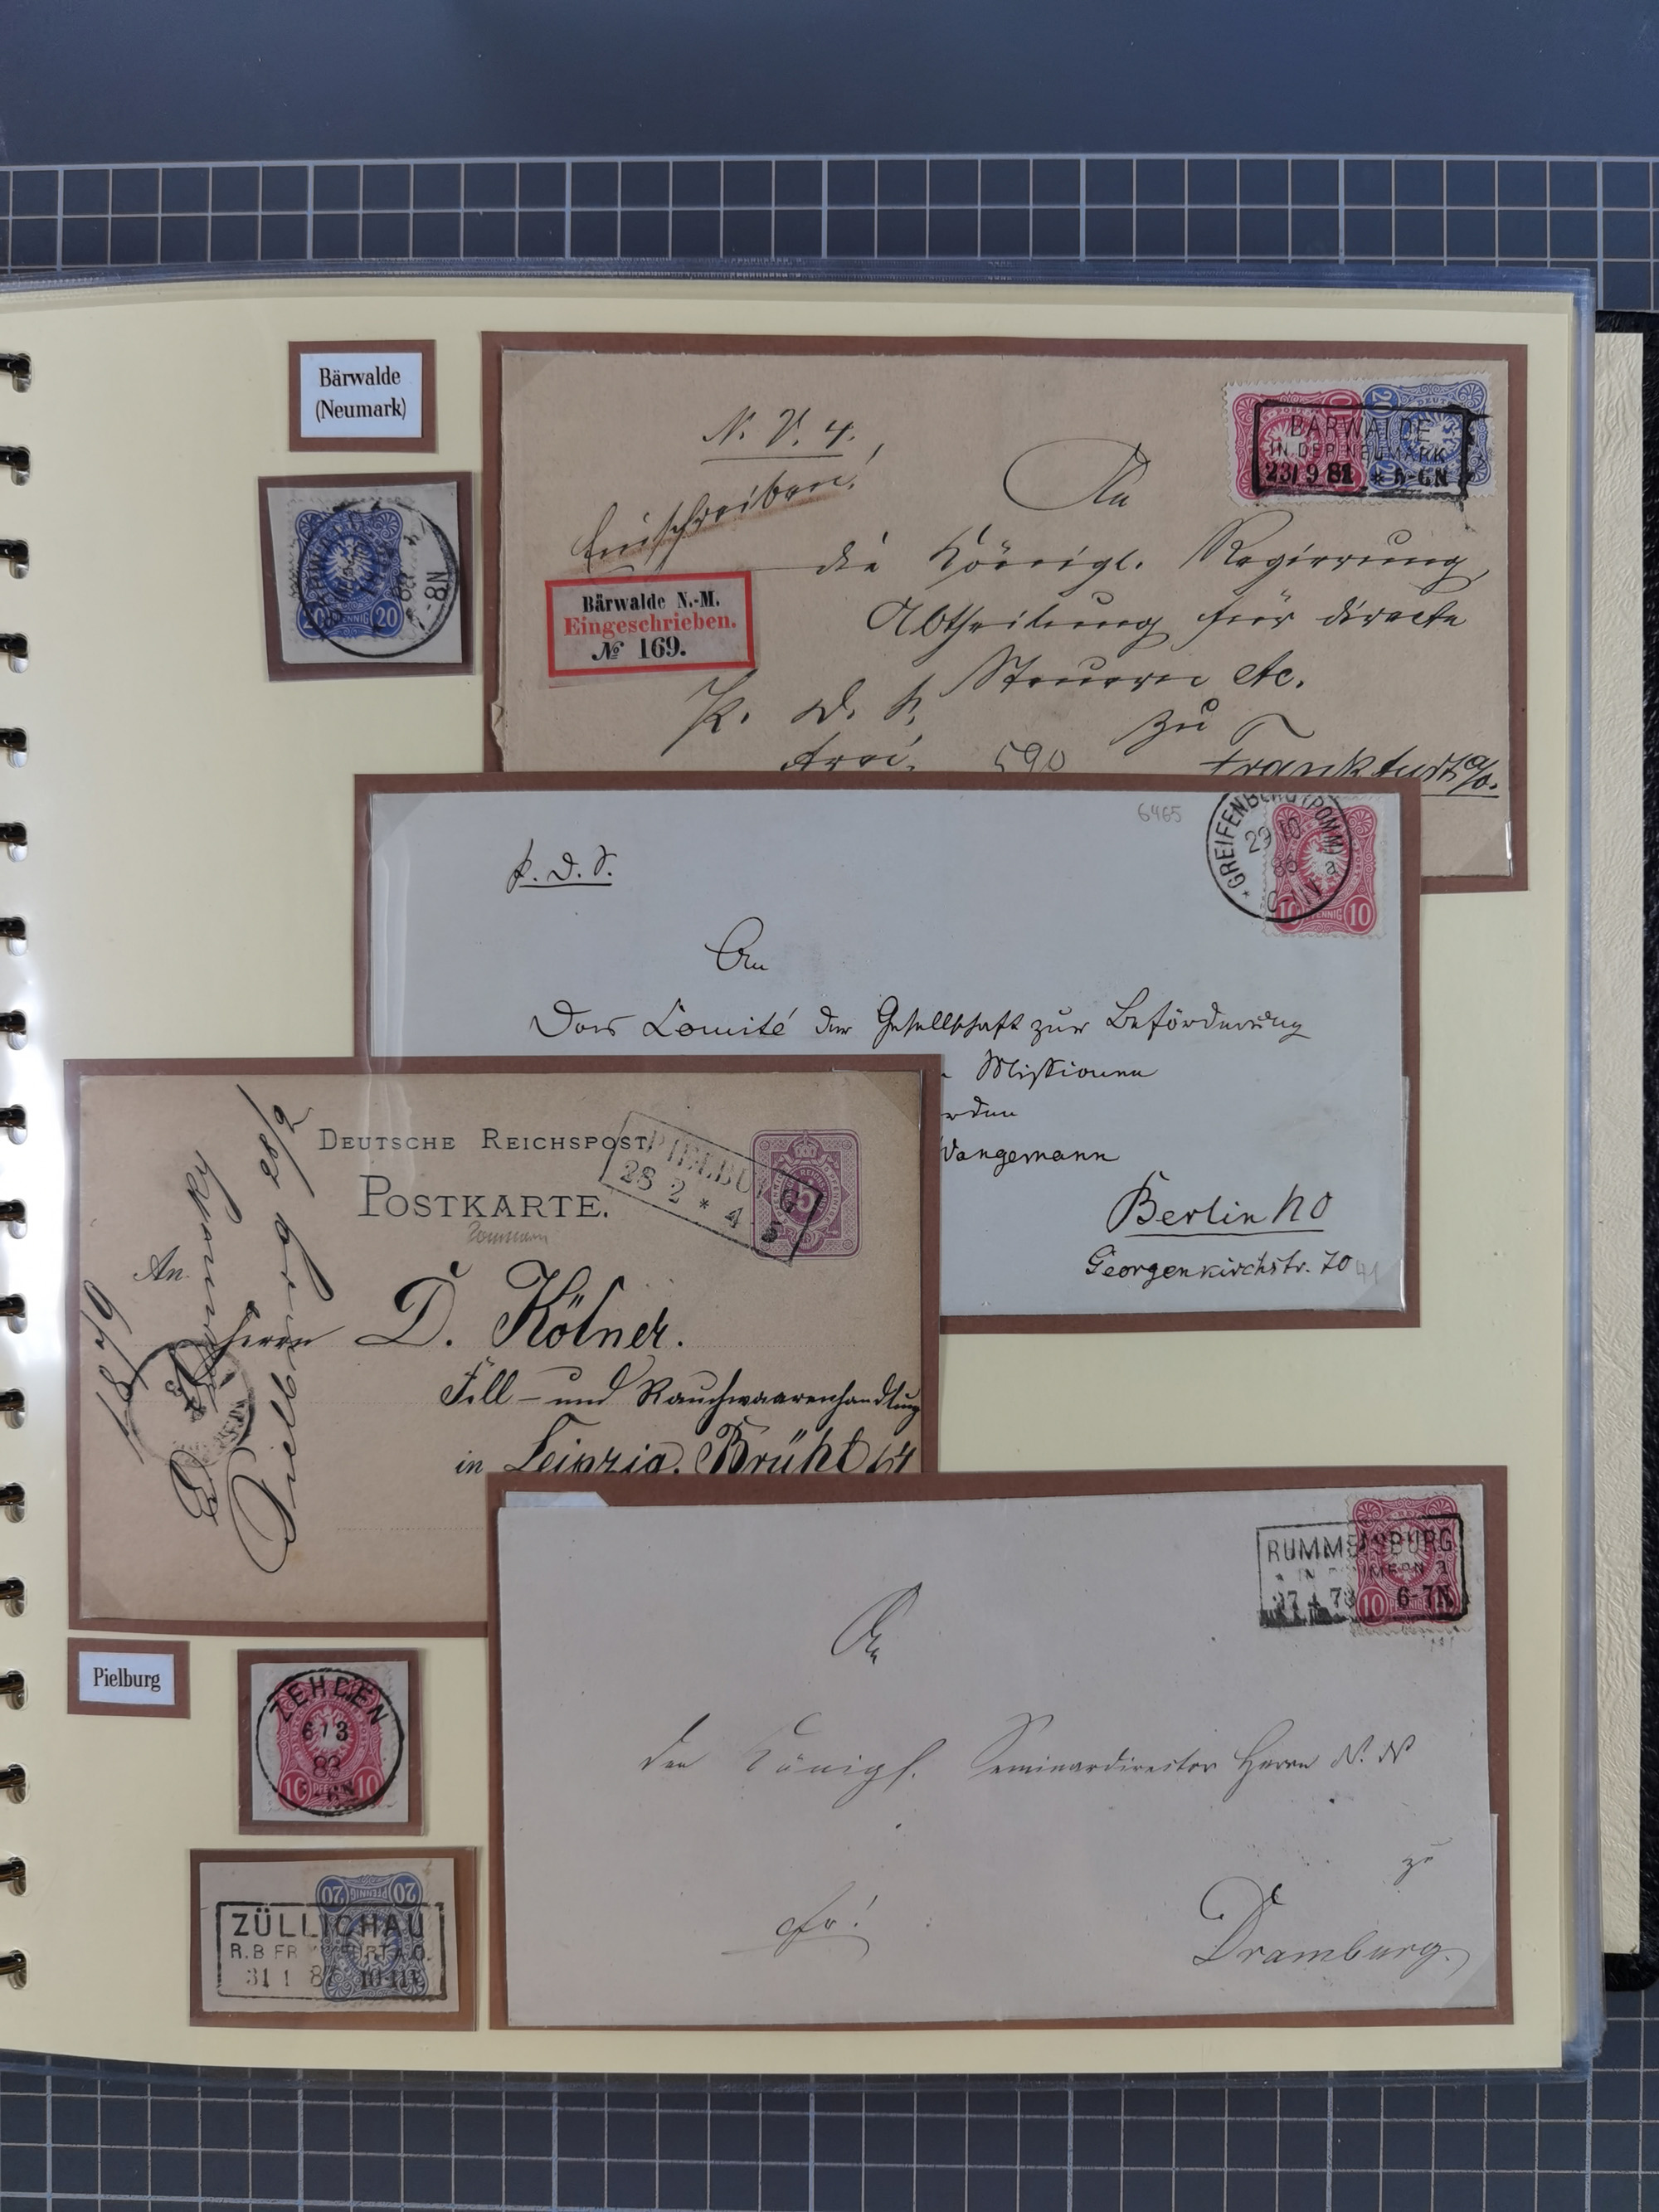 Bärwalde
(Neumark)
N. V. 4.
Einschreiben!
BÄRWALDE
IN DER NEUMARK
23/9 81 * 5-6N
An
die Königl. Regierung,
Abtheilung für directe
Steuern etc.
zu
Frankfurt a/O.
Bärwalde N.-M.
Eingeschrieben.
№ 169.
frei. 590
20 PFENNIG 20
8N
6465
GREIFENBERG (POMM)
29 10
a
10 PFENNIG 10
An
Das Comité der Gesellschaft zur Beförderung
Missionen
Wangemann
Berlin NO
Georgenkirchstr. 70
DEUTSCHE REICHSPOST
POSTKARTE.
PIELBURG
28 2 * 4 5
5
An
Herrn D. Kölner.
Fell- und Rauchwaarenhandlung
in Leipzig. Brühl 64
Pielburg 28/2
1879
Pielburg
ZEHDEN
6/3
83
10 PFENNIG 10
20 PFENNIG 20
ZÜLLICHAU
R.B FRANKFURT A.O.
31 1 87 10-11V
RUMMELSBURG
IN POMMERN
6-7N
10 PFENNIGE
An
den Königl. Seminardirector Herrn N. N
zu
Dramburg.
fr!